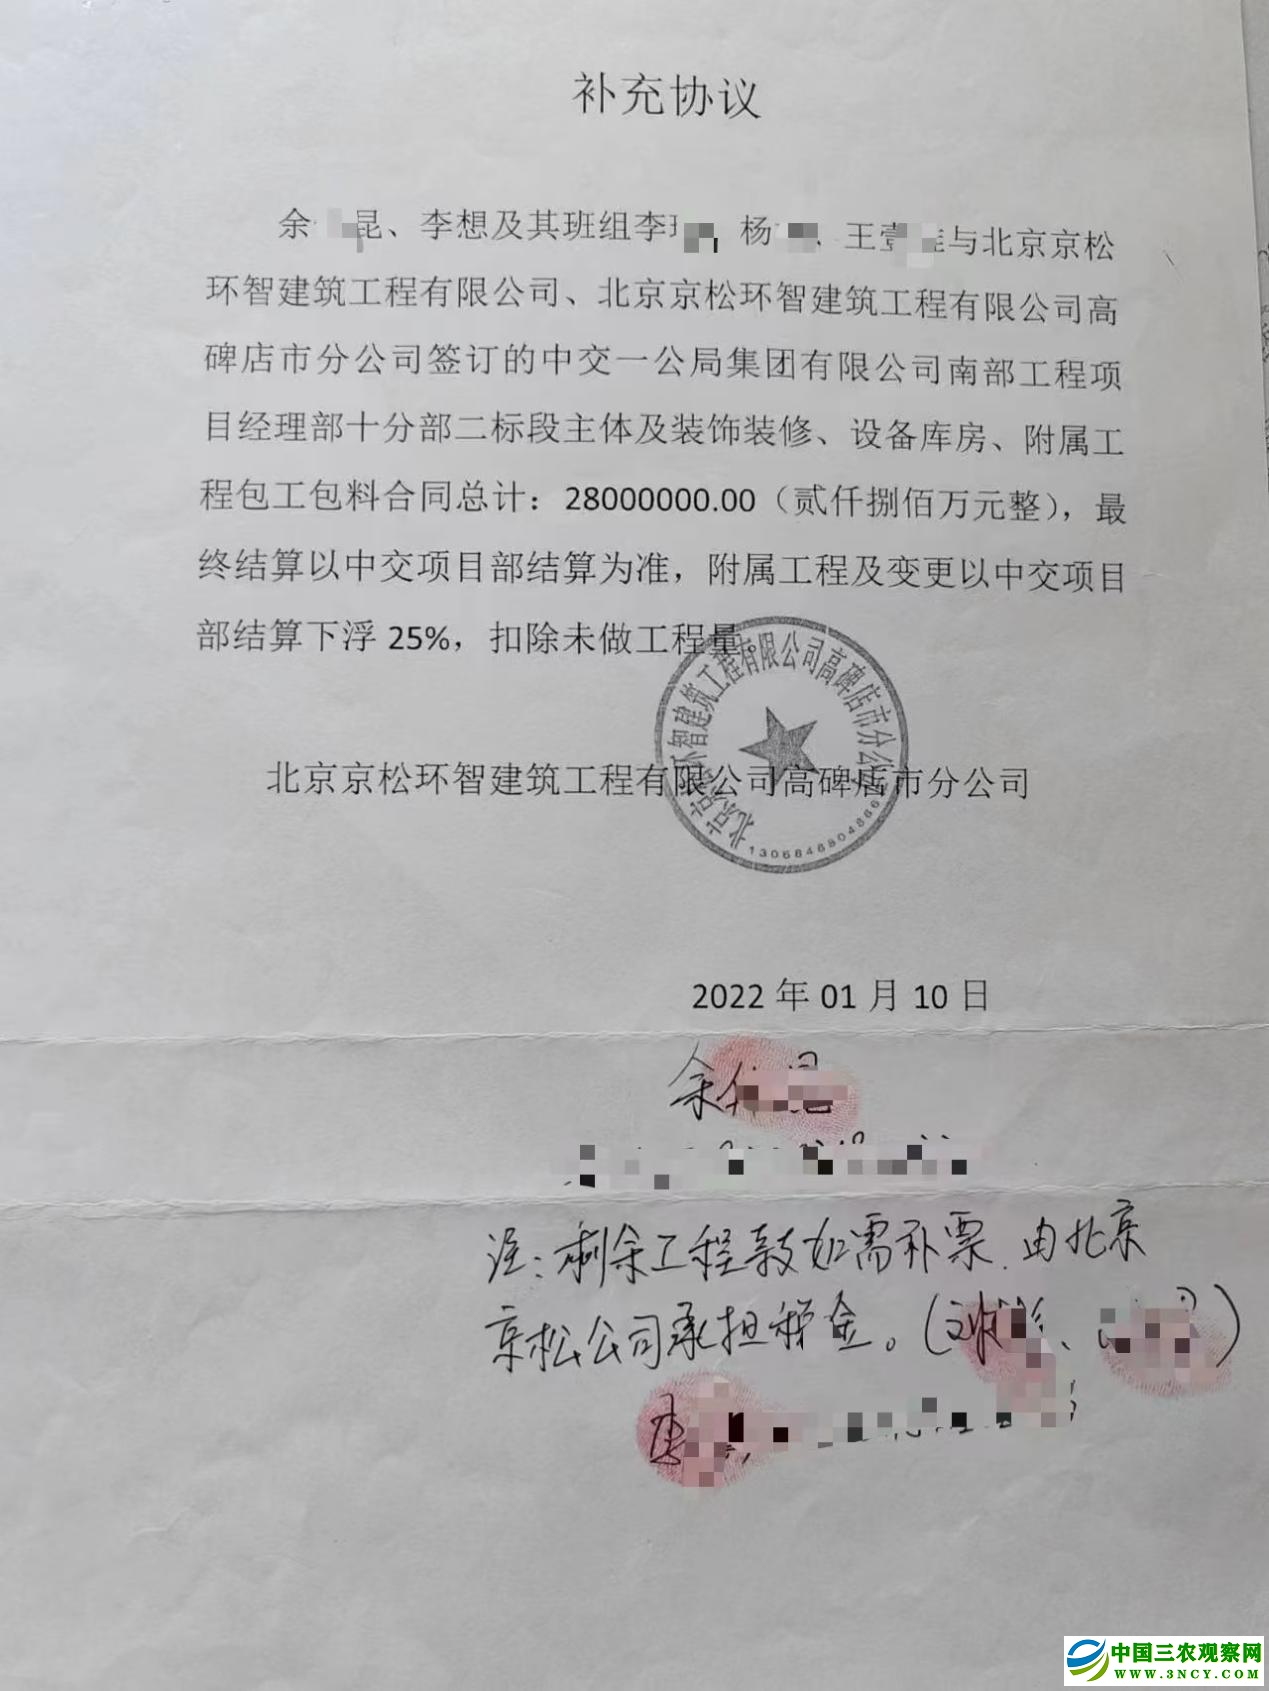 补充协议
余 昆、李想及其班组李 杨 、王壹 与北京京松
环智建筑工程有限公司、北京京松环智建筑工程有限公司高
碑店市分公司签订的中交一公局集团有限公司南部工程项
目经理部十分部二标段主体及装饰装修、设备库房、附属工
程包工包料合同总计：28000000.00（贰仟捌佰万元整），最
终结算以中交项目部结算为准，附属工程及变更以中交项目
部结算下浮 25%，扣除未做工程量。
北京京松环智建筑工程有限公司高碑店市分公司
北京京松环智建筑工程有限公司高碑店市分公司
2022 年 01 月 10 日
余
注：剩余工程款如需补票.由北京
京松公司承担税金。（ 、 ）
中国三农观察网
WWW.3NCY.COM